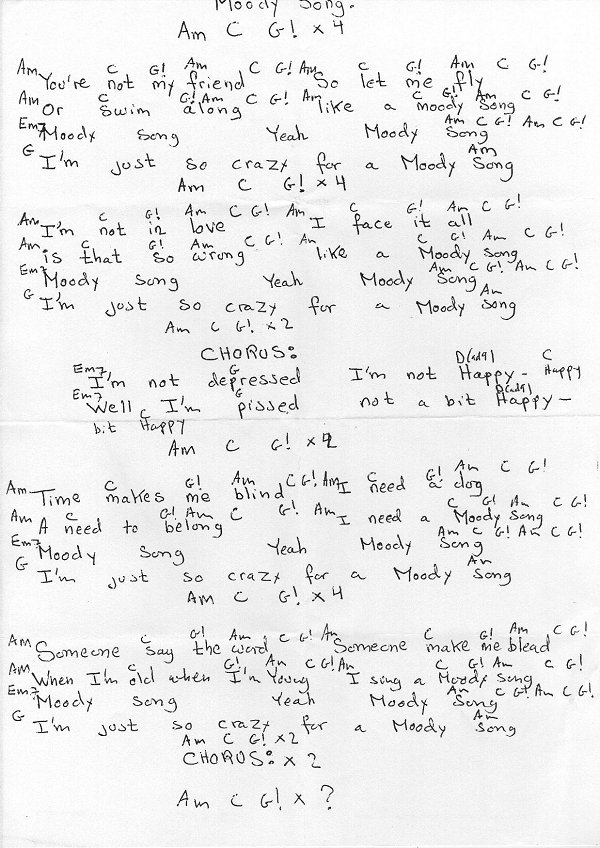 Moody Song.
Am C G! x 4
Am C G! Am C G! Am C G! Am C G!
You're not my friend So let me fly
Am C G! Am C G! Am C G! Am C G!
Or swim along like a moody song
Em7 Am C G! Am C G!
Moody song Yeah Moody Song
G Am
I'm just so crazy for a Moody Song
Am C G! x 4
Am C G! Am C G! Am C G! Am C G!
I'm not in love I face it all
Am C G! Am C G! Am C G! Am C G!
is that so wrong like a Moody song
Em7 Am C G! Am C G!
Moody Song Yeah Moody Song
G Am
I'm just so crazy for a Moody song
Am C G! x 2
CHORUS:
Em7 G D(ad9) C
I'm not depressed I'm not Happy - Happy
Em7 C G D(ad9)
Well I'm pissed not a bit Happy -
bit Happy
Am C G! x 2
Am C G! Am C G! Am C G! Am C G!
Time makes me blind I need a dog
Am C G! Am C G! Am C G! Am C G!
A need to belong I need a Moody Song
Em7 Am C G! Am C G!
Moody Song Yeah Moody Song
G Am
I'm just so crazy for a Moody Song
Am C G! x 4
Am C G! Am C G! Am C G! Am C G!
Someone say the word Someone make me blead
Am C G! Am C G! Am C G! Am C G!
When I'm old when I'm Young I sing a Moody song
Em7 Am C G! Am C G!
Moody song Yeah Moody Song
G Am
I'm just so crazy for a Moody song
Am C G! x 2
CHORUS: x 2
Am C G! x ?